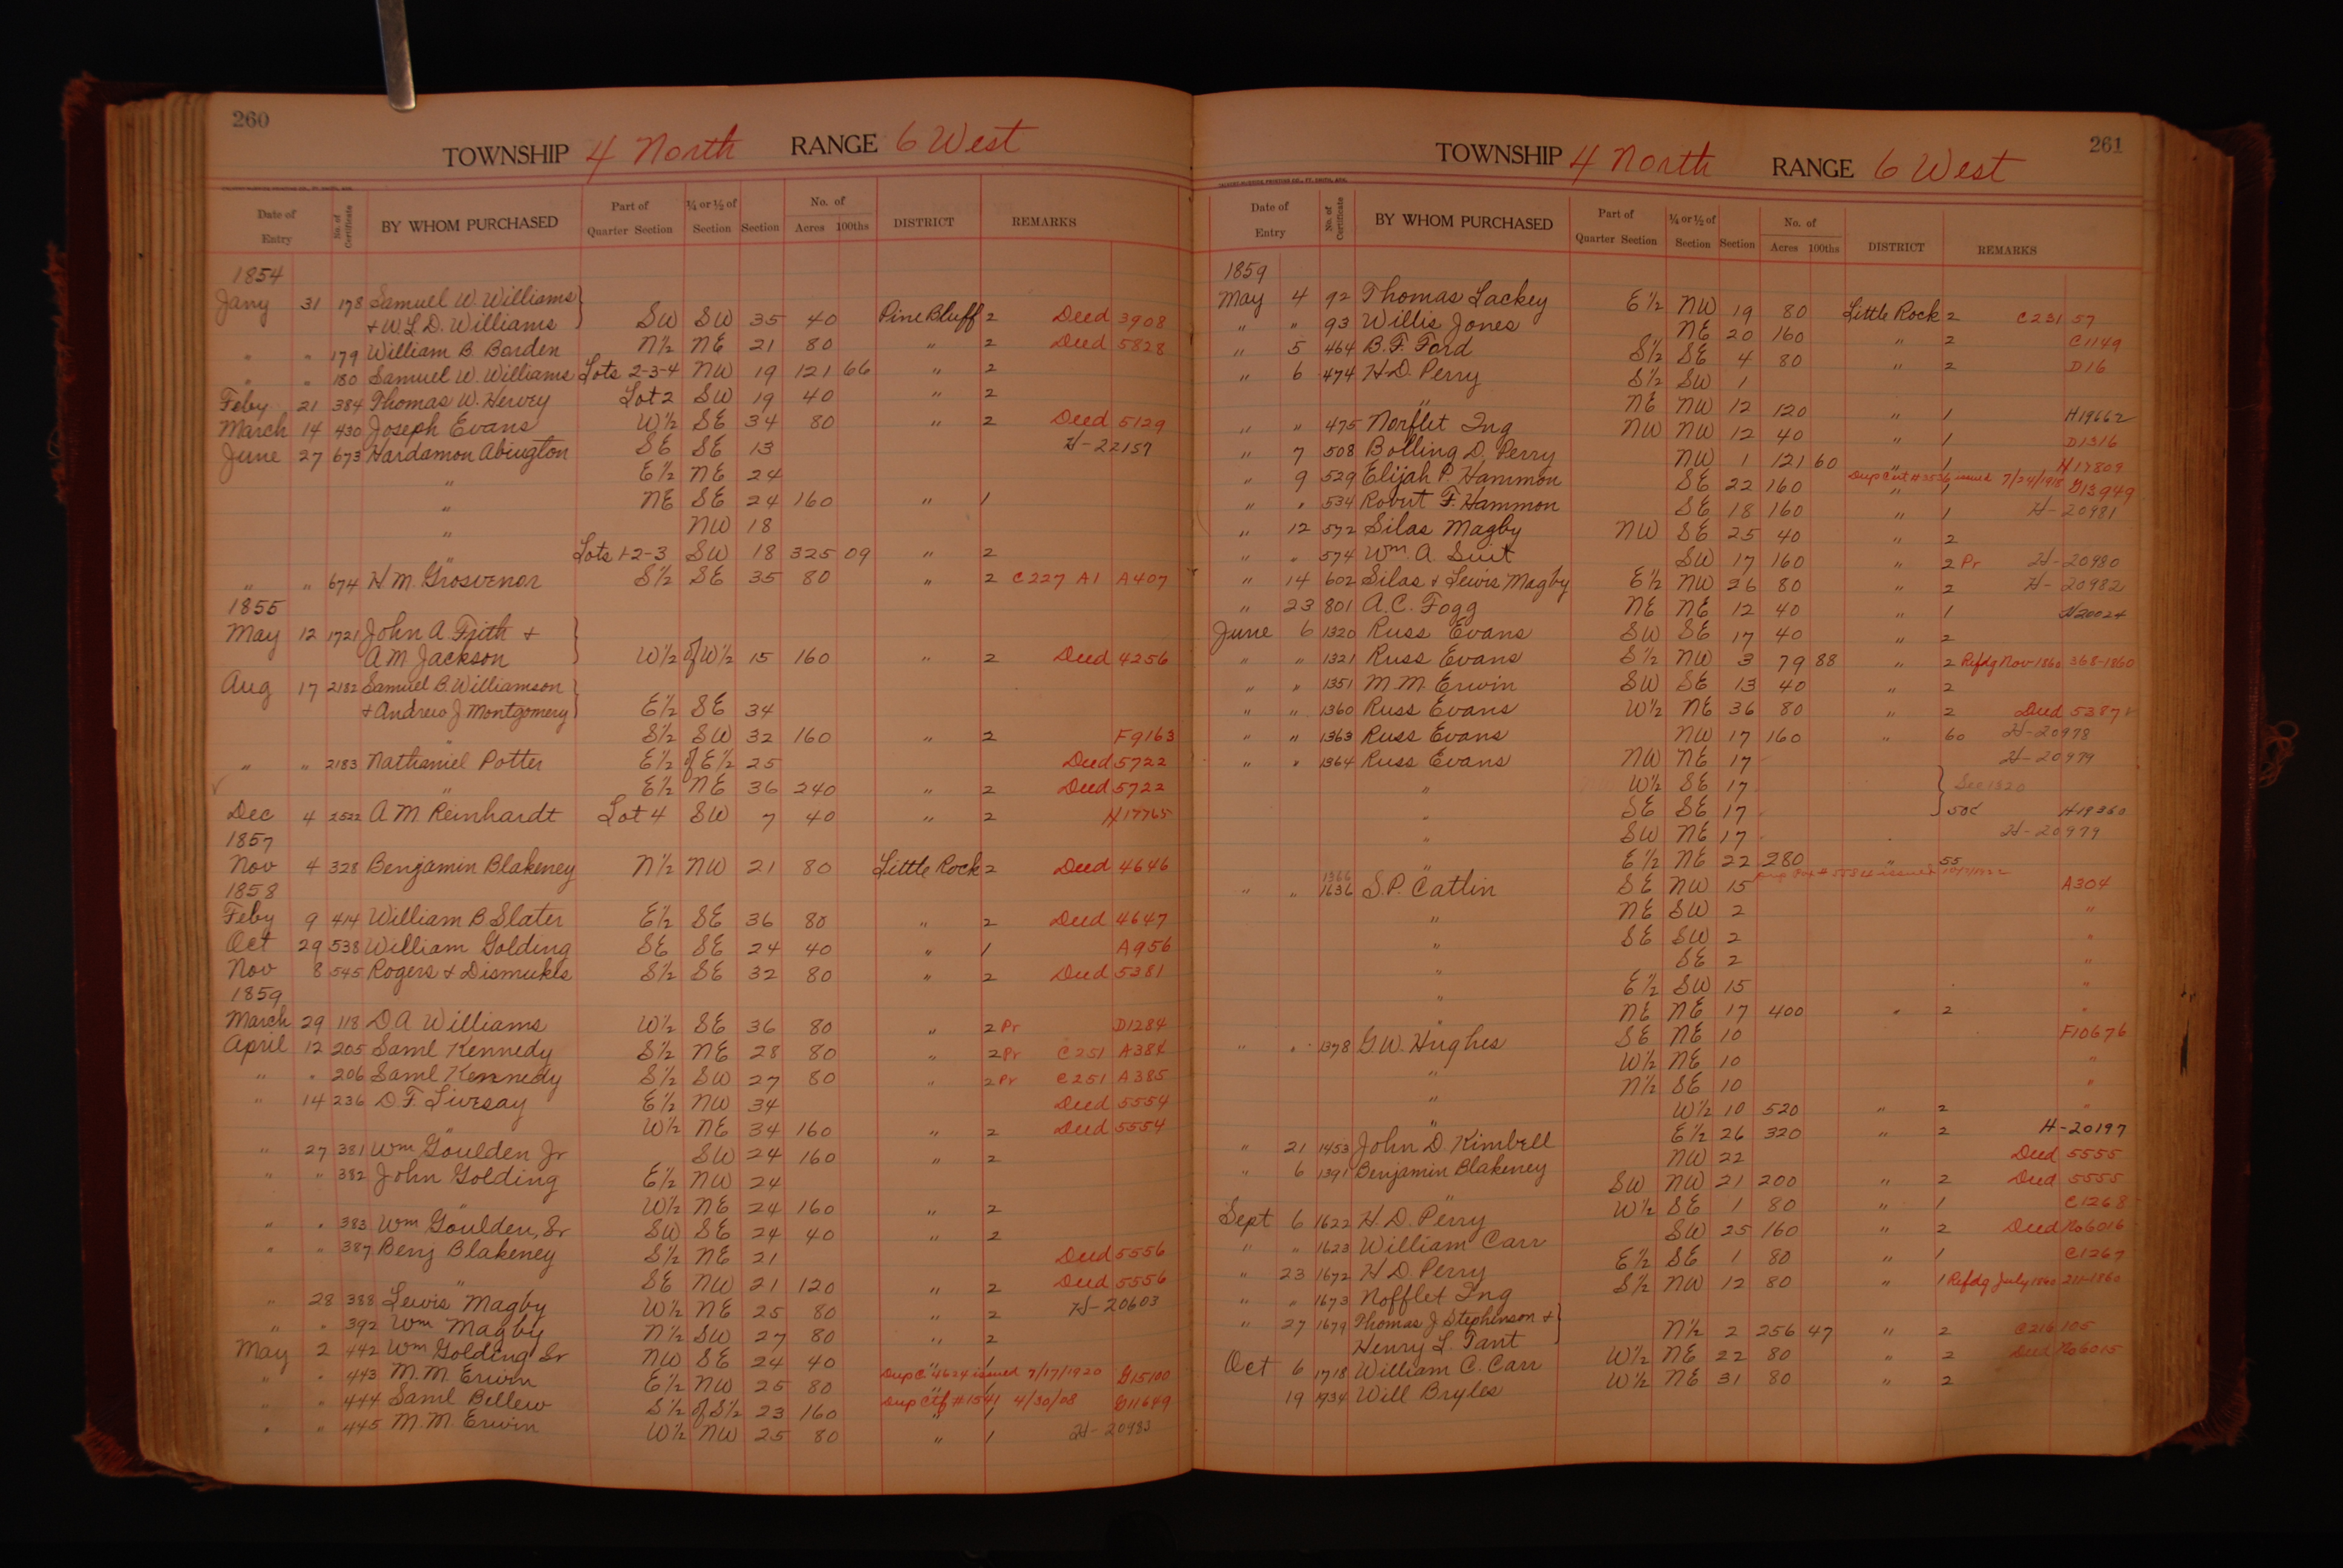 260
TOWNSHIP 4 North RANGE 6 West
Date of Entry No. of Certificate BY WHOM PURCHASED Part of Quarter Section ¼ or ½ of Section Section No. of Acres 100ths DISTRICT REMARKS
1854
Jany 31 178 Samuel W. Williams
& W. L. D. Williams SW SW 35 40 Pine Bluff 2 Deed 3908
" " 179 William B. Borden N½ NE 21 80 " 2 Deed 5828
" " 180 Samuel W. Williams Lots 2-3-4 NW 19 121 66 " 2
Feby 21 384 Thomas W. Hervey Lot 2 SW 19 40 " 2
March 14 430 Joseph Evans W½ SE 34 80 " 2 Deed 5129
June 27 673 Hardamon Abington SE SE 13 H-22157
" E½ NE 24
" NE SE 24 160 " 1
" NW 18
" Lots 1-2-3 SW 18 325 09 " 2
" " 674 H. M. Grosvenor S½ SE 35 80 " 2 C227 A1 A407
1855
May 12 1721 John A. Frith &
A M Jackson W½ of W½ 15 160 " 2 Deed 4256
Aug 17 2182 Samuel B. Williamson
& Andrew J Montgomery E½ SE 34
" S½ SW 32 160 " 2 F9163
" " 2183 Nathaniel Potter E½ of E½ 25 Deed 5722
" E½ NE 36 240 " 2 Deed 5722
Dec 4 2522 A M Reinhardt Lot 4 SW 7 40 " 2 H17765
1857
Nov 4 328 Benjamin Blakeney N½ NW 21 80 Little Rock 2 Deed 4646
1858
Feby 9 414 William B Slater E½ SE 36 80 " 2 Deed 4647
Oct 29 538 William Golding SE SE 24 40 " 1 A956
Nov 8 545 Rogers & Dismukes S½ SE 32 80 " 2 Deed 5381
1859
March 29 118 D. A Williams W½ SE 36 80 " 2 Pr D1284
April 12 205 Saml Kennedy S½ NE 28 80 " 2 Pr C251 A384
" " 206 Saml Kennedy S½ SW 27 80 " 2 Pr C251 A385
" 14 236 D. F. Livesay E½ NW 34 Deed 5554
" W½ NE 34 160 " 2 Deed 5554
" 27 381 Wm Goulden Jr SW 24 160 " 2
" " 382 John Golding E½ NW 24
" W½ NE 24 160 " 2
" " 383 Wm Goulden, Sr SW SE 24 40 " 2
" " 387 Benj Blakeney S½ NE 21 Deed 5556
" SE NW 21 120 " 2 Deed 5556
" 28 388 Lewis Magby W½ NE 25 80 " 2 H-20603
" " 392 Wm Magby N½ SW 27 80 " 2
May 2 442 Wm Golding Sr NW SE 24 40 " 1
" " 443 M. M. Erwin E½ NW 25 80 Dup C 4624 issued 7/17/1920 G15100
" " 444 Saml Bellew S½ of S½ 23 160 Dup Ctf #1541 4/30/08 G11649
" " 445 M. M. Erwin W½ NW 25 80 " 1 H-20983
261
TOWNSHIP 4 North RANGE 6 West
Date of Entry No. of Certificate BY WHOM PURCHASED Part of Quarter Section ¼ or ½ of Section Section No. of Acres 100ths DISTRICT REMARKS
1859
May 4 92 Thomas Lackey E½ NW 19 80 Little Rock 2 C231 57
" " 93 Willis Jones NE 20 160 " 2 C1149
" 5 464 B. F. Ford S½ SE 4 80 " 2 D16
" 6 474 H. D. Perry S½ SW 1
" NE NW 12 120 " 1 H19662
" " 475 Norflet Ing NW NW 12 40 " 1 D1316
" 7 508 Bolling D. Perry NW 1 121 60 " 1 H17809
" 9 529 Elijah P. Hammon SE 22 160 Dup Cert #3536 issued 7/24/1918 " 1 G13949
" " 534 Robert F. Hammon SE 18 160 " 1 H-20981
" 12 572 Silas Magby NW SE 25 40 " 2
" " 574 Wm. A Suit SW 17 160 " 2 Pr H-20980
" 14 602 Silas & Lewis Magby E½ NW 26 80 " 2 H-20982
" 23 801 A. C. Fogg NE NE 12 40 " 1 H20024
June 6 1320 Russ Evans SW SE 17 40 " 2
" " 1321 Russ Evans S½ NW 3 79 88 " 2 Refdg Nov-1860 368-1860
" " 1351 M. M. Erwin SW SE 13 40 " 2
" " 1360 Russ Evans W½ NE 36 80 " 2 Deed 5387
" " 1363 Russ Evans NW 17 160 " 60 H-20978
" " 1364 Russ Evans NW NE 17 H-20979
" W½ SE 17 See 1320
" SE SE 17 50¢ H18360
" SW NE 17 H-20979
" E½ NE 22 280 " 55
" " 1366 1636 S. P. Catlin SE NW 15 A304
" NE SW 2 "
" SE SW 2 "
" SE 2 "
" E½ SW 15 "
" NE NE 17 400 " 2 "
" " 1378 G. W. Hughes SE NE 10 F10676
" W½ NE 10 "
" N½ SE 10 "
" W½ 10 520 " 2 "
" 21 1453 John D. Kimbell E½ 26 320 " 2 H-20197
" 6 1391 Benjamin Blakeney NW 22 Deed 5555
" SW NW 21 200 " 2 Deed 5555
Sept 6 1622 H. D. Perry W½ SE 1 80 " 1 C1268
" " 1623 William Carr SW 25 160 " 2 Deed No 6016
" 23 1672 H D. Perry E½ SE 1 80 " 1 C1267
" " 1673 Nofflet Ing S½ NW 12 80 " 1 Refdg July 1860 211-1860
" 27 1679 Thomas J Stephenson &
Henry L. Tant N½ 2 256 47 " 2 C216 105
Oct 6 1718 William C. Carr W½ NE 22 80 " 2 Deed No 6015
19 1934 Will Bryles W½ NE 31 80 " 2